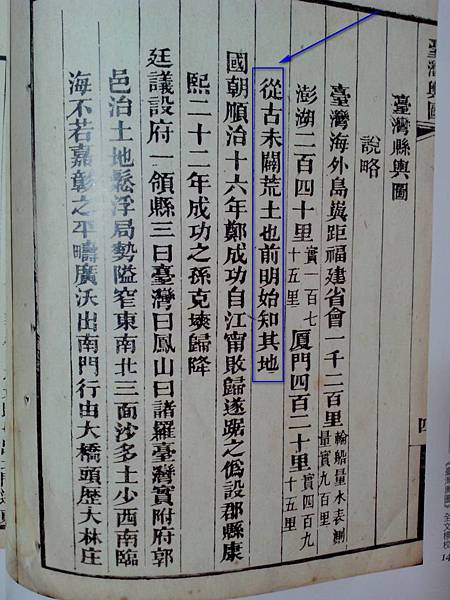 臺灣輿圖
臺灣縣輿圖
說略
臺灣海外島嶼距福建省會一千二百里輪船量水表測量實九百里
澎湖二百四十里實一百七十五里厦門四百二十里實四百九十五里
從古未闢荒土也前明始知其地
國朝順治十六年鄭成功自江甯敗歸遂踞之僞設郡縣康
熙二十二年成功之孫克塽歸降
廷議設府一領縣三曰臺灣曰鳳山曰諸羅臺灣實附府郭
邑治土地鬆浮局勢隘窄東南北三面沙多土少西南臨
海不若嘉彰之平疇廣沃出南門行由大橋頭歷大林庄
四
《臺灣輿圖》全文標校
14